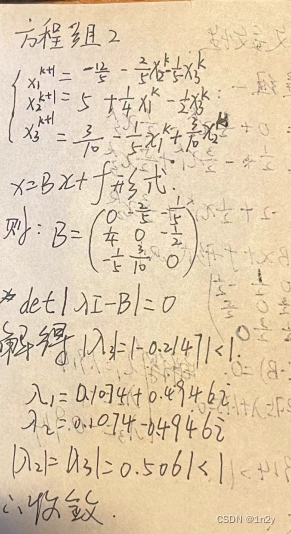 方程组2
x₁ᵏ⁺¹ = -12/5 - 2/5 x₂ᵏ - 1/5 x₃ᵏ
x₂ᵏ⁺¹ = 5 + 1/4 x₁ᵏ - 1/2 x₃ᵏ
x₃ᵏ⁺¹ = 3/10 - 1/5 x₁ᵏ + 3/10 x₂ᵏ
x=Bx+f形式.
则: B= ( 0 -2/5 -1/5
1/4 0 -1/2
-1/5 3/10 0 )
det|λI-B|=0
解得 |λ3|=|-0.2147|<1
λ1=0.1074+0.4946i
λ2=0.1074-0.4946i
|λ2|=|λ3|=0.5061<1
∴收敛.
CSDN @1n2y